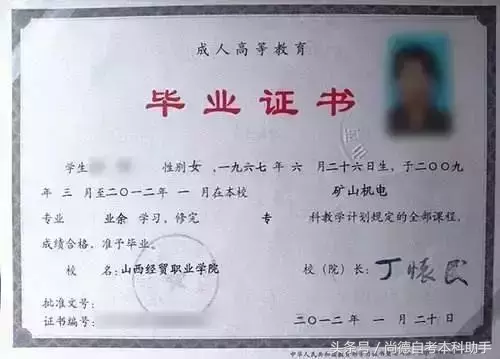 成人高等教育
毕业证书
学生 性别 女 ,一九六七年 六 月二十六日生,于二〇〇九
年 三 月至二〇一二年 一 月在本校 矿山机电
专业 业余 学习,修完 专 科教学计划规定的全部课程,
成绩合格,准予毕业。
校 名:山西经贸职业学院 校(院)长:
批准文号:
证书编号:
二〇一二年 一 月二十日
头条号 / 尚德自考本科助手